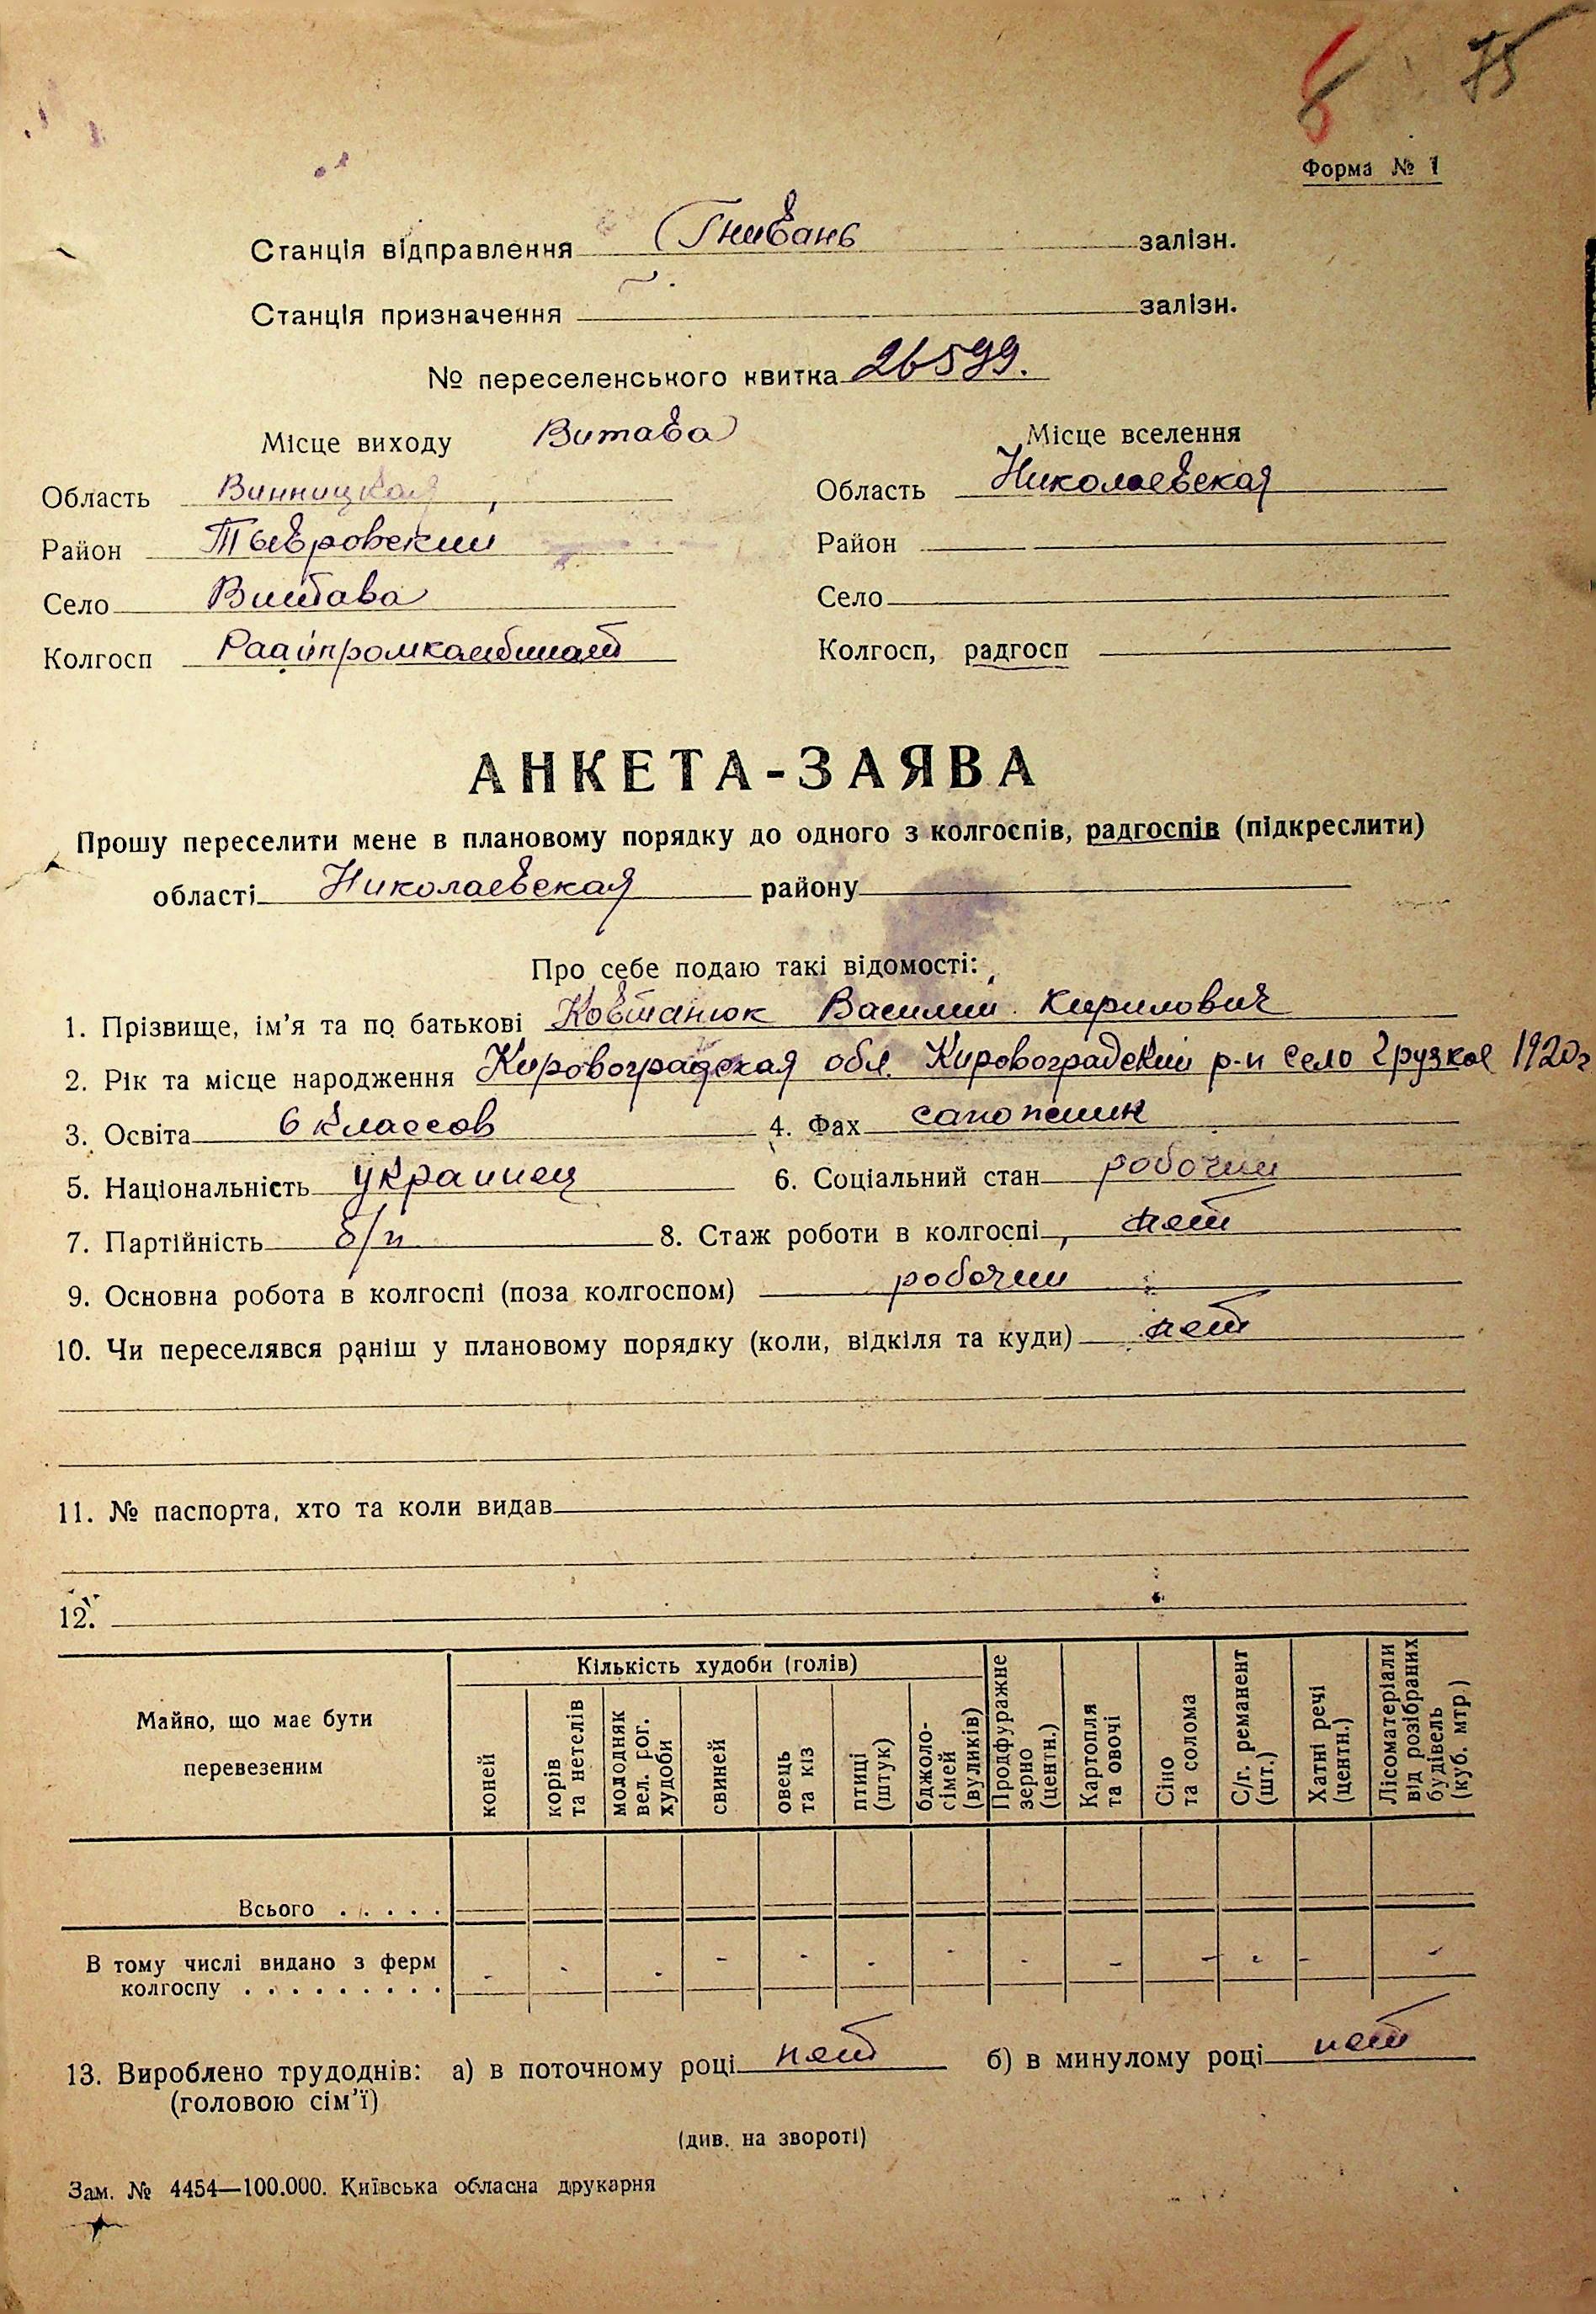 6 75
Форма № 1
Станція відправлення Гнивань залізн.
Станція призначення залізн.
№ переселенського квитка 26599.
Місце виходу Витава Місце вселення
Область Винницкая Область Николаевская
Район Тывровский Район
Село Витава Село
Колгосп Раайпромкомбинат Колгосп, радгосп
АНКЕТА-ЗАЯВА
Прошу переселити мене в плановому порядку до одного з колгоспів, радгоспів (підкреслити)
області Николаевская району
Про себе подаю такі відомості:
1. Прізвище, ім'я та по батькові Ковтанюк Василий Кирилович
2. Рік та місце народження Кировоградская обл. Кировоградский р-н село Грузкое 1920г
3. Освіта 6 классов 4. Фах сапожник
5. Національність украинец 6. Соціальний стан робочий
7. Партійність б/п 8. Стаж роботи в колгоспі, нет
9. Основна робота в колгоспі (поза колгоспом) робочий
10. Чи переселявся раніш у плановому порядку (коли, відкіля та куди) нет
11. № паспорта, хто та коли видав
12.
Майно, що має бути перевезеним
Кількість худоби (голів)
коней
корів та нетелів
молодняк вел. рог. худоби
свиней
овець та кіз
птиці (штук)
бджоло-сімей (вуликів)
Продфуражне зерно (центн.)
Картопля та овочі
Сіно та солома
С/г. реманент (шт.)
Хатні речі (центн.)
Лісоматеріали від розібраних будівель (куб. мтр)
Всього . . . . .
В тому числі видано з ферм
колгоспу . . . . . . . . . - - - - - - - - - - - - -
13. Вироблено трудоднів: а) в поточному році нет б) в минулому році нет
(головою сім'ї)
(див. на звороті)
Зам. № 4454—100.000. Київська обласна друкарня